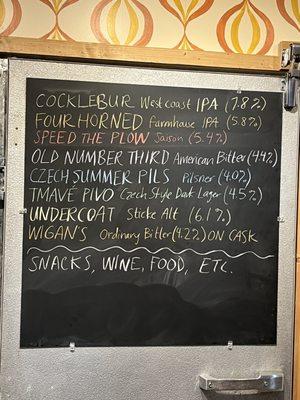 COCKLEBUR West coast IPA (7.8%)
FOUR HORNED Farmhouse IPA (5.8%)
SPEED THE PLOW Saison (5.4%)
OLD NUMBER THIRD American Bitter (4.4%)
CZECH SUMMER PILS Pilsner (4.0%)
TMAVÉ PIVO Czech Style Dark Lager (4.5%)
UNDERCOAT Sticke Alt (6.1%)
WIGAN'S Ordinary Bitter (4.2%) ON CASK
SNACKS, WINE, FOOD, ETC.